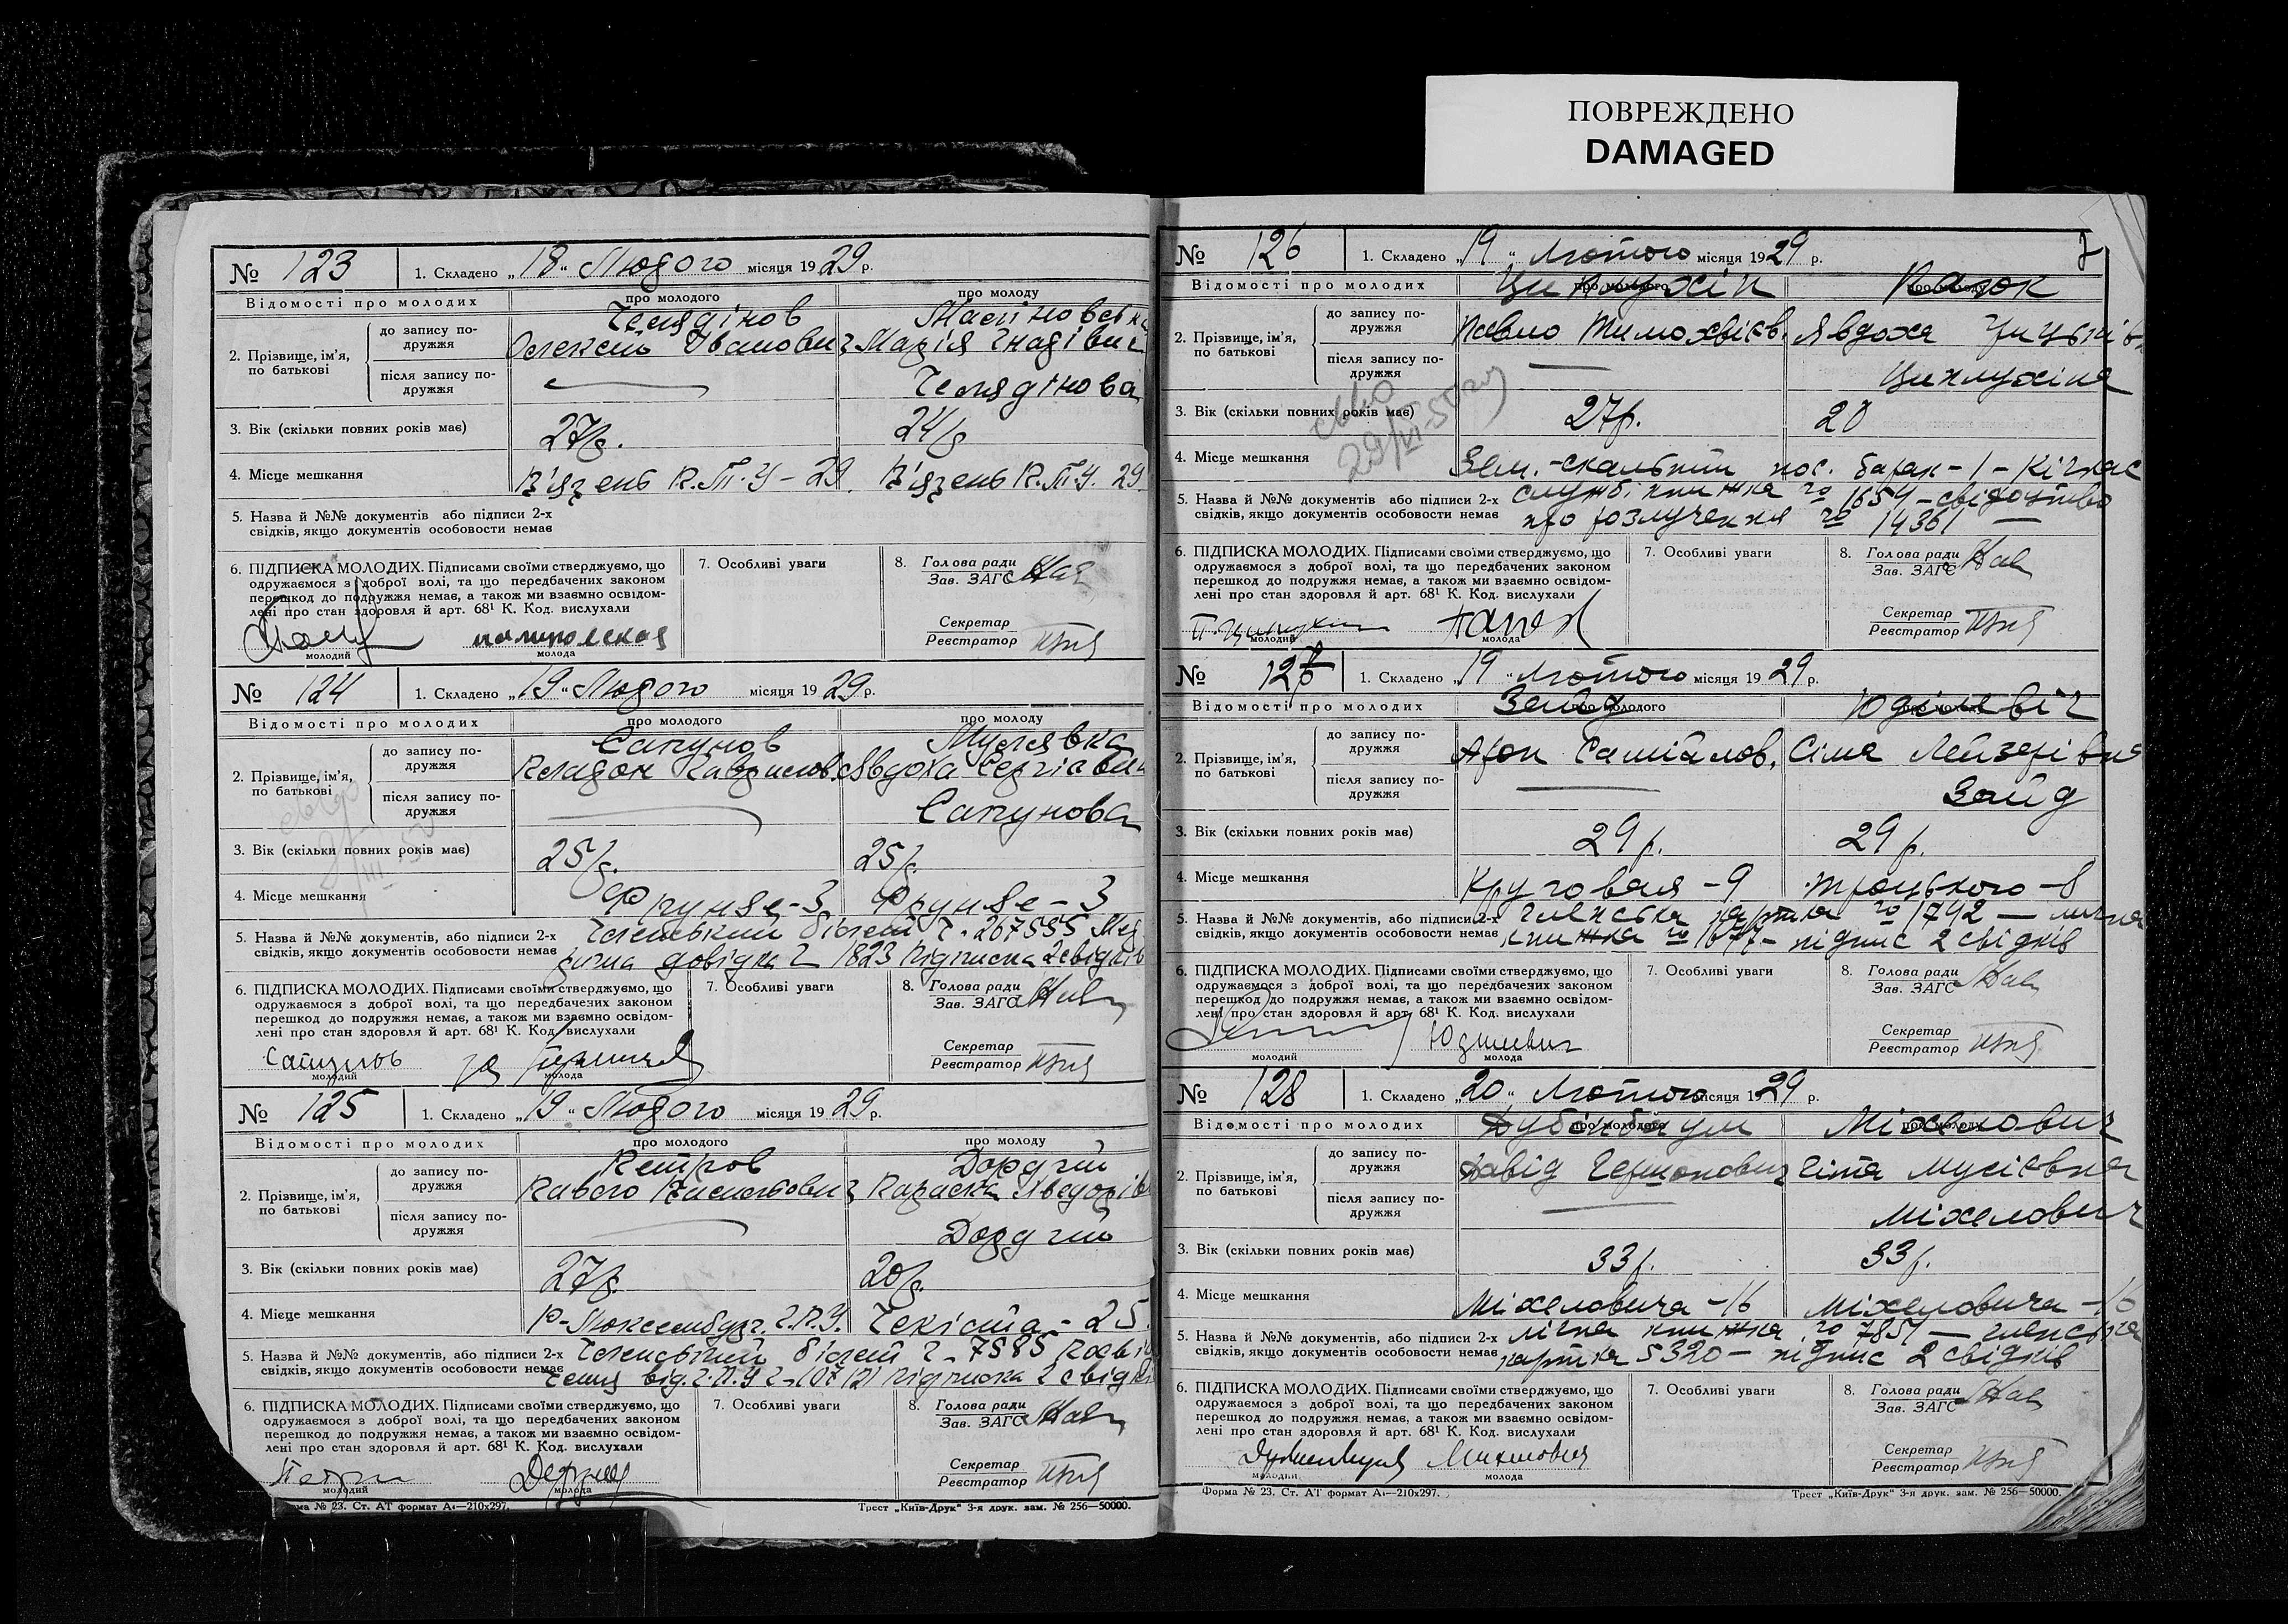 ПОВРЕЖДЕНО
DAMAGED
№ 123 1. Складено „18“ Лютого місяця 1929 р.
Відомості про молодих про молодого про молоду
2. Прізвище, ім’я, по батькові
до запису подружжя
Челядінов
Олексій Іванович Марія
після запису подружжя
Челядінова
3. Вік (скільки повних років має) 27 р. 24 р.
4. Місце мешкання
5. Назва й №№ документів або підписи 2-х
свідків, якщо документів особовости немає
6. ПІДПИСКА МОЛОДИХ. Підписами своїми стверджуємо, що
одружаємося з доброї волі, та що передбачених законом
перешкод до подружжя немає, а також ми взаємно освідом-
лені про стан здоровля й арт. 68¹ К. Код. вислухали
молодий молода
7. Особливі уваги
8. Голова ради
Зав. ЗАГС
Секретар
Реєстратор
№ 124 1. Складено „19“ Лютого місяця 1929 р.
Відомості про молодих про молодого про молоду
2. Прізвище, ім’я, по батькові
до запису подружжя
Сапунов
Явдоха Сергіївна
після запису подружжя
Сапунова
3. Вік (скільки повних років має) 25 р. 25 р.
4. Місце мешкання Фрунзе-3 Фрунзе-3
5. Назва й №№ документів, або підписи 2-х
свідків, якщо документів особовости немає
Членський білет
довідка 1823 Підписка 2 свідків
6. ПІДПИСКА МОЛОДИХ. Підписами своїми стверджуємо, що
одружаємося з доброї волі, та що передбачених законом
перешкод до подружжя немає, а також ми взаємно освідом-
лені про стан здоровля й арт. 68¹ К. Код вислухали
Сапунов
молодий молода
7. Особливі уваги
8. Голова ради
Зав. ЗАГС
Секретар
Реєстратор
№ 125 1. Складено „19“ Лютого місяця 1929 р.
Відомості про молодих про молодого про молоду
2. Прізвище, ім’я, по батькові
до запису подружжя
Петров
Параска Хведорів
після запису подружжя
3. Вік (скільки повних років має) 27 р. 20 р.
4. Місце мешкання Р-Люксембург. Г.П.У. Чекіста - 25
5. Назва й №№ документів, або підписи 2-х
свідків, якщо документів особовости немає
Членський білет 7885
від. Г.П.У підписка 2 свідків
6. ПІДПИСКА МОЛОДИХ. Підписами своїми стверджуємо, що
одружаємося з доброї волі, та що передбачених законом
перешкод до подружжя немає, а також ми взаємно освідом-
лені про стан здоровля й арт. 68¹ К. Код. вислухали
молодий молода
7. Особливі уваги
8. Голова ради
Зав. ЗАГС
Секретар
Реєстратор
Форма № 23. Ст. АТ формат А₄—210х297. Трест „Київ-Друк“ 3-я друк. зам. № 256—50000.
7
№ 126 1. Складено „19“ Лютого місяця 1929 р.
Відомості про молодих про молодого про молоду
Циплухін Папок
2. Прізвище, ім’я, по батькові
до запису подружжя
Павло Тимохвієв. Явдоха
після запису подружжя
Циплухіна
3. Вік (скільки повних років має) 27 р. 20
4. Місце мешкання барак-1-
5. Назва й №№ документів або підписи 2-х
свідків, якщо документів особовости немає
книжка № 1654 - свідоцтво
про розлучення № 14361 —
6. ПІДПИСКА МОЛОДИХ. Підписами своїми стверджуємо, що
одружаємося з доброї волі, та що передбачених законом
перешкод до подружжя немає, а також ми взаємно освідом-
лені про стан здоровля й арт. 68¹ К. Код. вислухали
молодий молода
7. Особливі уваги
8. Голова ради
Зав. ЗАГС
Секретар
Реєстратор
№ 127 1. Складено „19“ Лютого місяця 1929 р.
Відомості про молодих про молодого про молоду
Зайд Юділевіч
2. Прізвище, ім’я, по батькові
до запису подружжя
Арон Самійлов. Сіма Лейзерівна
після запису подружжя
Зайд
3. Вік (скільки повних років має) 29 р. 29 р.
4. Місце мешкання Круговая -9 Троцького -8
5. Назва й №№ документів, або підписи 2-х
свідків, якщо документів особовости немає
членська картка № 1742 — лична
книжка № 1677 - підпис 2 свідків
6. ПІДПИСКА МОЛОДИХ. Підписами своїми стверджуємо, що
одружаємося з доброї волі, та що передбачених законом
перешкод до подружжя немає, а також ми взаємно освідом-
лені про стан здоровля й арт. 68¹ К. Код. вислухали
Юдилевич
молодий молода
7. Особливі уваги
8. Голова ради
Зав. ЗАГС
Секретар
Реєстратор
№ 128 1. Складено „20“ Лютого місяця 1929 р.
Відомості про молодих про молодого про молоду
Дубінбаум Міхелович
2. Прізвище, ім’я, по батькові
до запису подружжя
Давід Гершонович Гіта Мусієвна
після запису подружжя
Міхелович
3. Вік (скільки повних років має) 33 р. 33 р.
4. Місце мешкання Міхеловича -16 Міхеловича -16
5. Назва й №№ документів, або підписи 2-х
свідків, якщо документів особовости немає
лічна книжка № 7851 — членська
картка 5320 — підпис 2 свідків
6. ПІДПИСКА МОЛОДИХ. Підписами своїми стверджуємо, що
одружаємося з доброї волі, та що передбачених законом
перешкод до подружжя немає, а також ми взаємно освідом-
лені про стан здоровля й арт. 68¹ К. Код. вислухали
Михелович
молодий молода
7. Особливі уваги
8. Голова ради
Зав. ЗАГС
Секретар
Реєстратор
Форма № 23. Ст. АТ формат А₄—210х297. Трест „Київ-Друк“ 3-я друк. зам. № 256—50000.